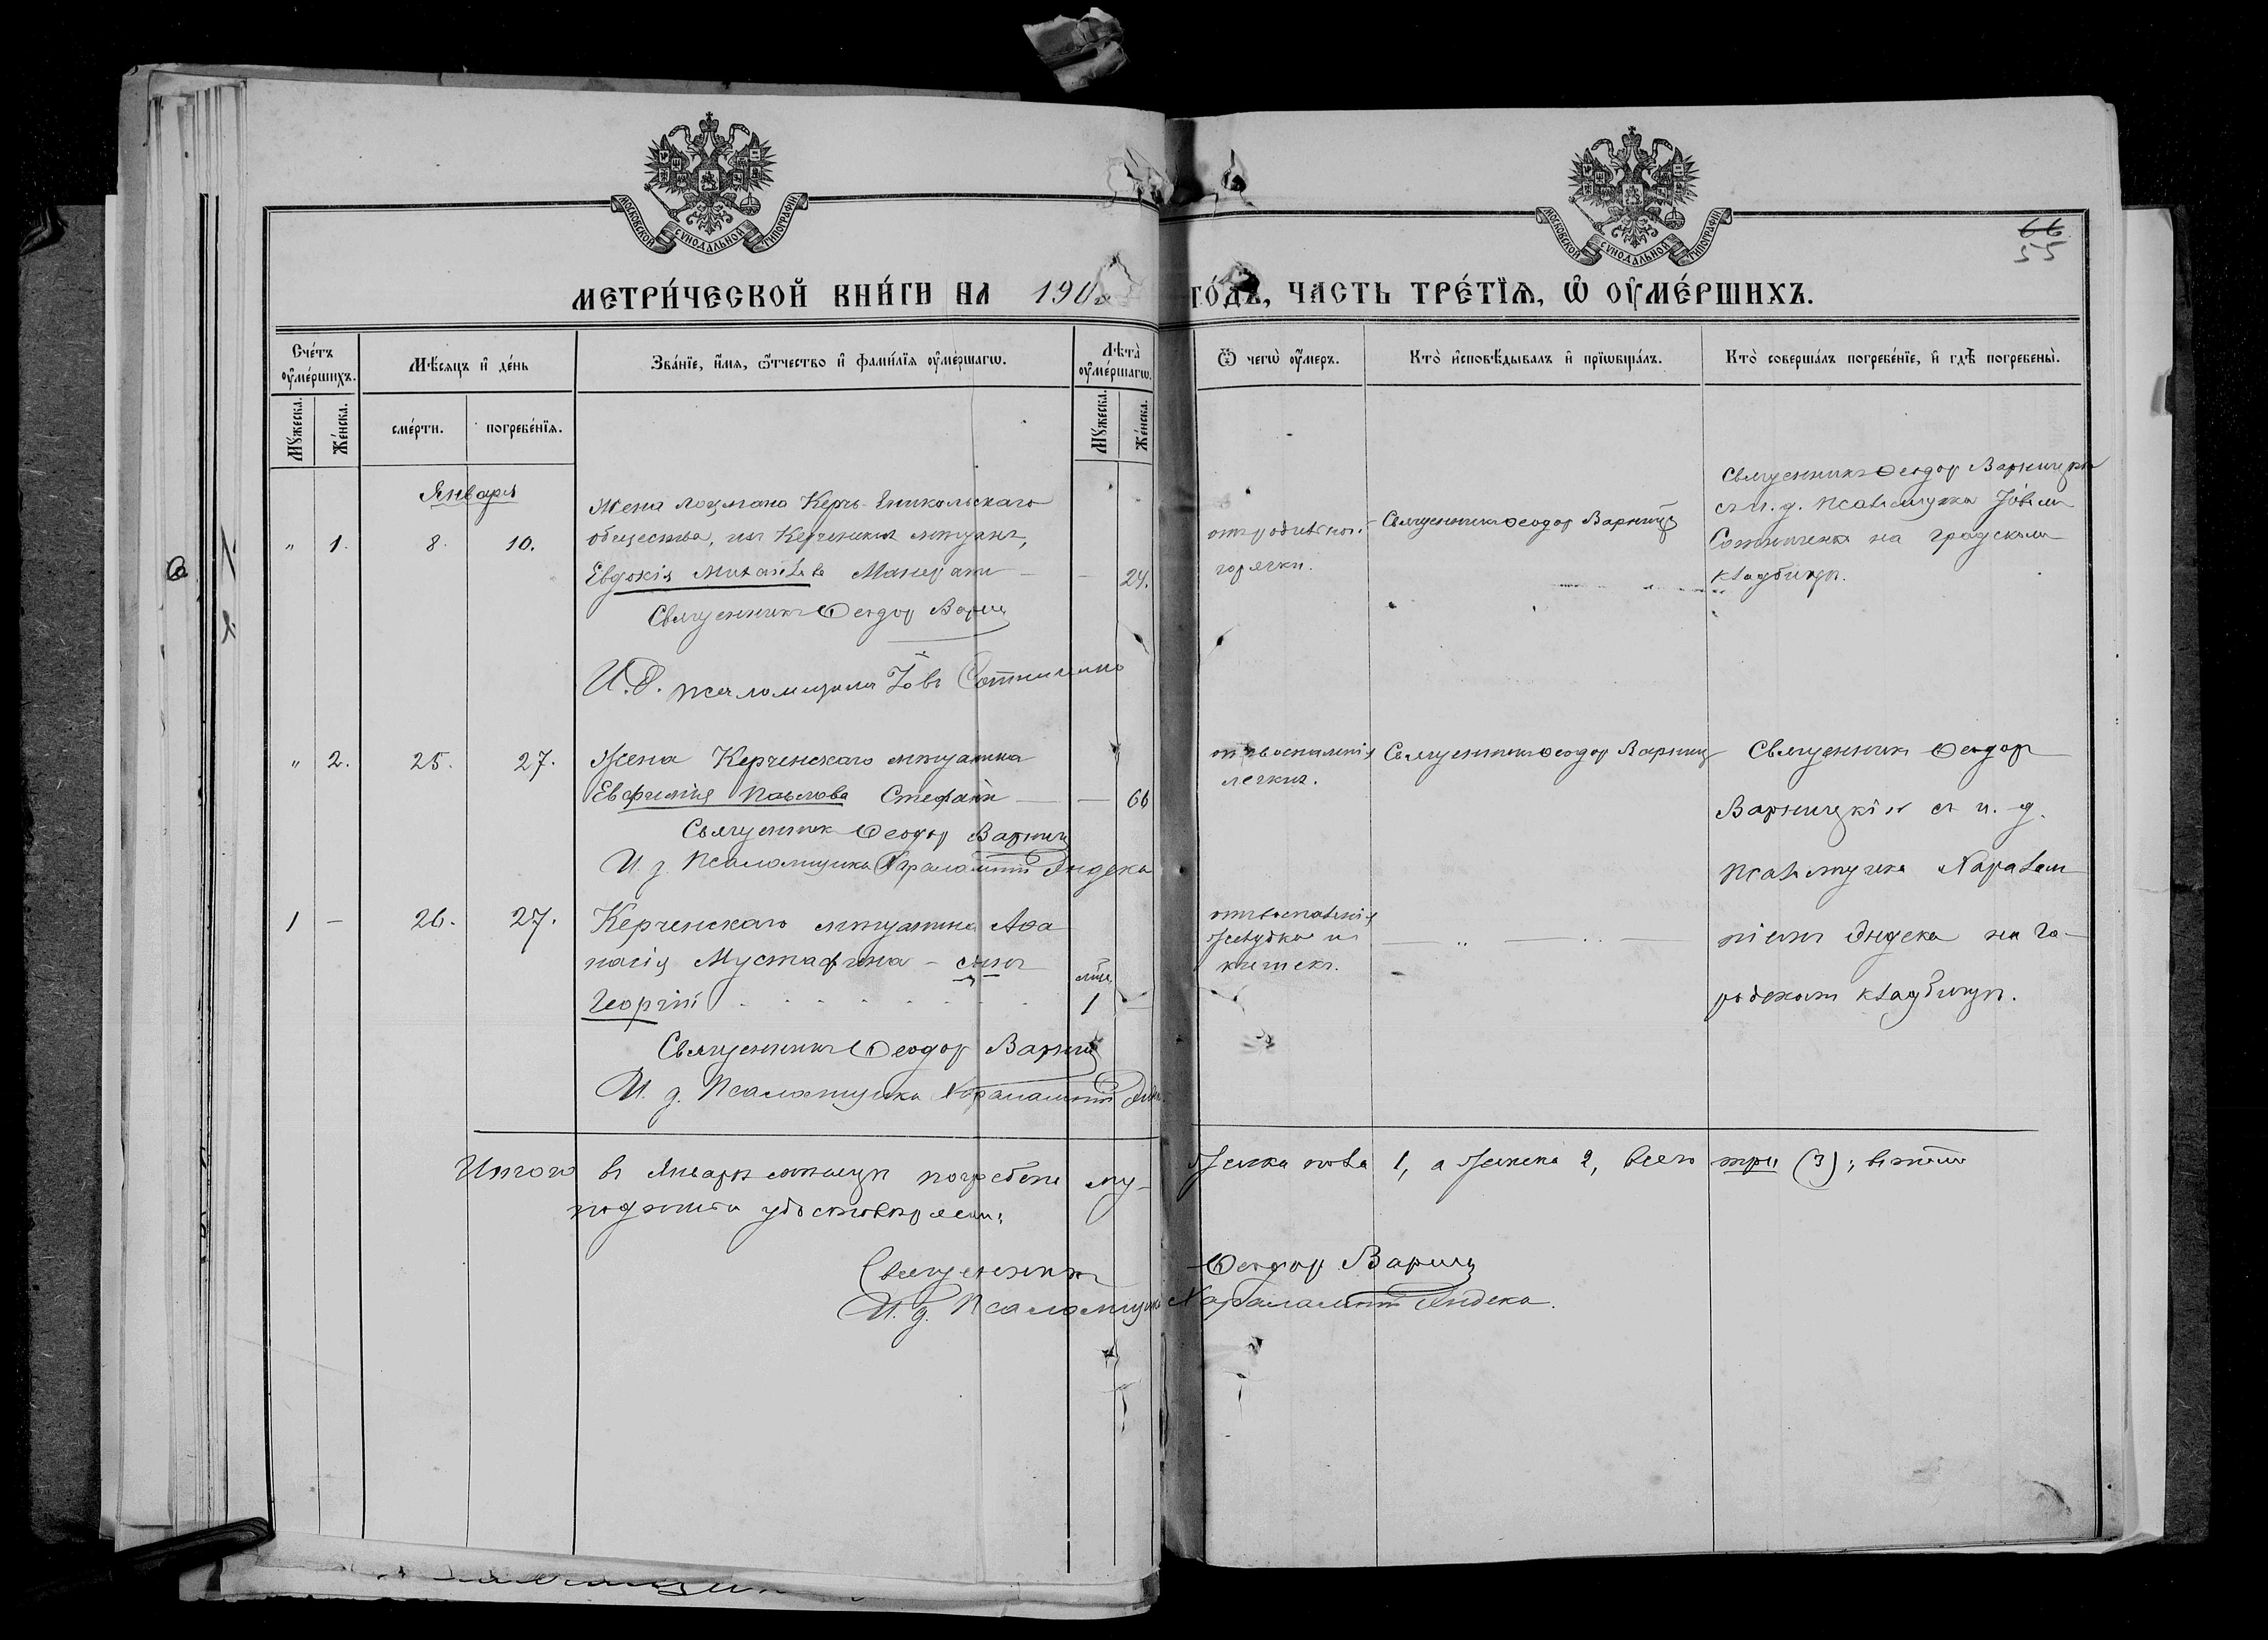 МОСКОВСКОЙ СѴНОДАЛЬНОЙ ТИПОГРАФІИ
МОСКОВСКОЙ СѴНОДАЛЬНОЙ ТИПОГРАФІИ
66
55
МЕТРИ́ЧЕСКОЙ КНИ́ГИ НА 190
ГО́ДЪ, ЧАСТЬ ТРЕ́ТІѦ, Ѡ ОУМЕ́РШИХЪ.
Сче́тъ оуме́ршихъ.
Мꙋжеска.
Же́нска.
Мѣ́сяцъ и де́нь
сме́рти.
погребе́нїѧ.
Зва́нїе, и́мѧ, ѻтчество и фами́лїѧ оуме́ршагѡ.
Лѣта̀ оуме́ршагѡ.
Мꙋжеска.
Же́нска.
Ѿ чегѡ̀ оу́меръ.
Кто̀ исповѣ́дывалъ и прїѡбща́лъ.
Кто̀ соверша́лъ погребе́нїе, и гдѣ̀ погребены̀.
Января
" 1. 8. 10.
Жена лоцмана Керчь-Еникольскаго
общества, изъ Керченскихъ мѣщанъ,
Евдокія Михайлова — — 24.
Священникъ Ѳеодор Варниц
И.д. псаломщика Іовъ Сотниченко
отъ родильной
горячки.
Священникъ Ѳеодор Варниц
Священникъ Ѳеодор Варницкій
съ и. д. псаломщика Іовомъ
Сотниченко на градскомъ
кладбищѣ.
" 2. 25. 27.
Жена Керченскаго мѣщанина
Евфимія Павлова — — 66
Священник Ѳеодор Варниц
И. д. Псаломщика Харалампій Яндека
отъ воспаленія
легкихъ.
Священникъ Ѳеодор Варниц
Священник Ѳеодор
Варницкій съ и. д.
псаломщика Харалам
піемъ Яндека на го-
родскомъ кладбищѣ.
1 – 26. 27.
Керченскаго мѣщанина Аѳа
насія Мустафина – сынъ
Георгій
мѣс.
1 —
Священникъ Ѳеодор Варниц
И. д. Псаломщика Харалампій
отъ воспаленія
желудка и
кишекъ.
— " — " —
Итого въ Январѣ мѣсяцѣ погребено му-
жеска пола 1, а женска 2, всего три (3); въ чемъ
подписью удостовѣряемъ:
Священникъ Ѳеодор Варниц
И. д. Псаломщика Харалампій Яндека.